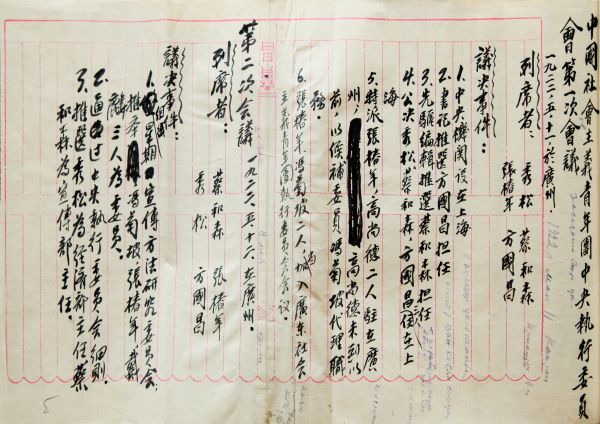 中國社會主義青年團中央執行委員
會第一次會議
一九二二、五、十一於廣州.
列席者: 秀松 蔡和森
張椿年 方國昌
議决事件:
1.中央機関設在上海
2.書記推選方國昌担任
3.先驅編輯推選蔡和森担任
4.公决秀松,蔡和森,方國昌三同志在上
海
5.特派張椿年,高尚德二人駐在廣
州. 高尚德未到以
前,以侯補委員馮菊坡代理職
務.
6.張椿年馮菊坡二人加入廣东社会
主義青年團執行委員会会议.
第二次会議 一九二二、五、十六在廣州.
列席者: 蔡和森 張椿年
秀松 方國昌
議决事件:
1.星期日宣傳方法研究委員会,
推举 馮菊坡張椿年戴
麟三人為委員.
2.通过中央執行委員会細則.
3.推選秀松為經济部主任蔡
和森為宣傳部主任.